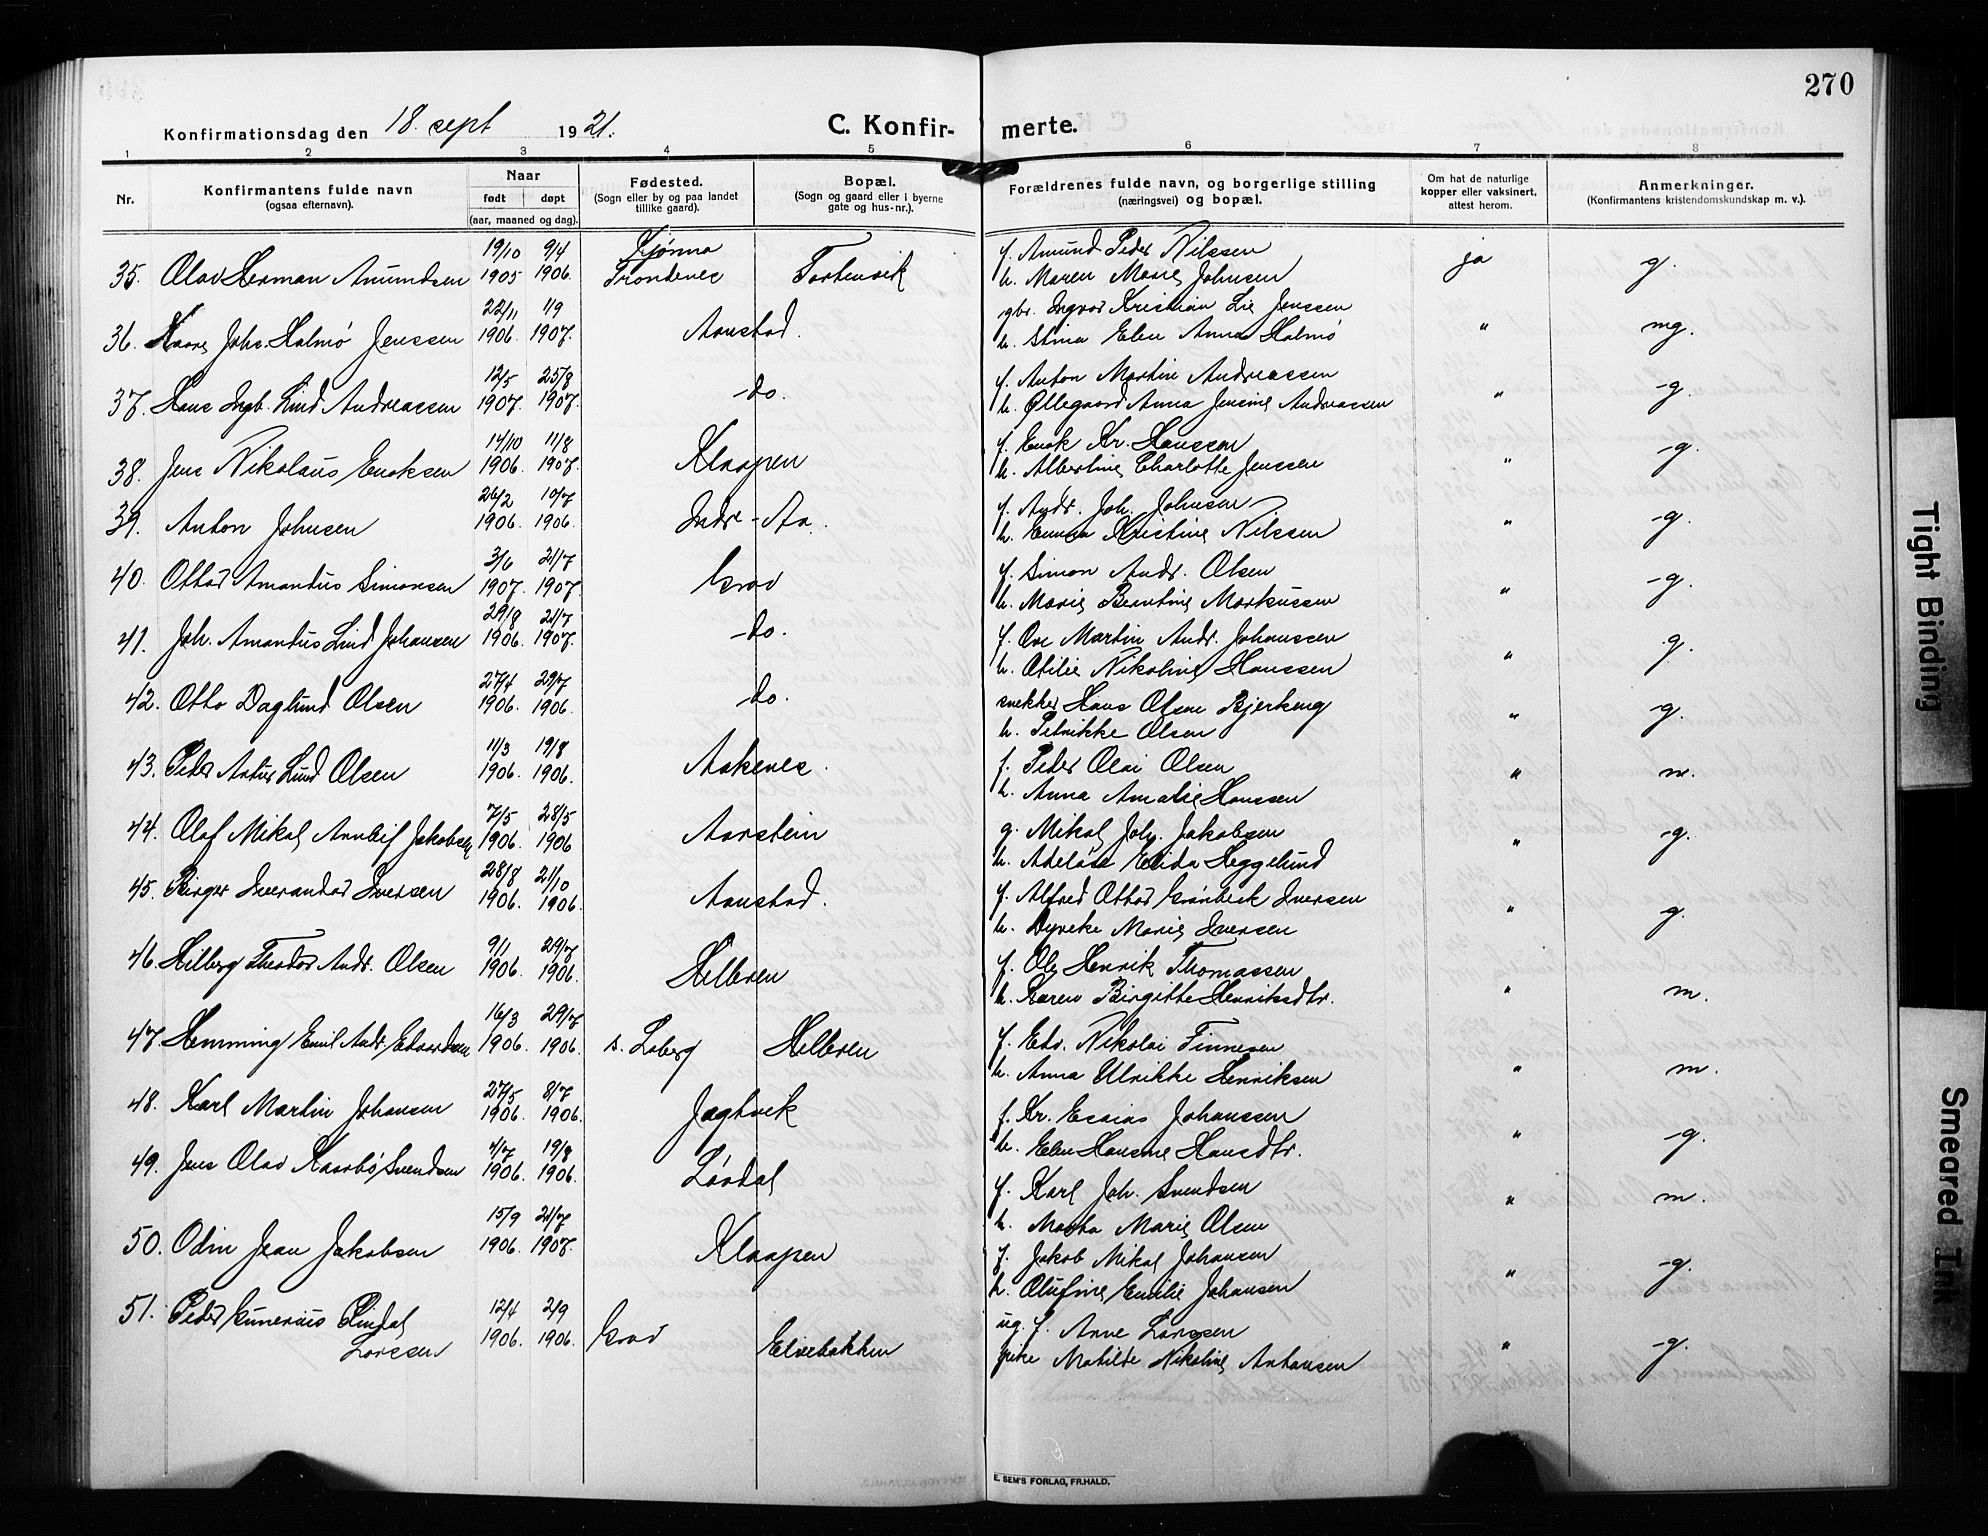 270
Konfirmationsdag den 18. sept 1921.
C. Konfir- merte.
1 2 3 4 5 6 7 8
Nr.
Konfirmantens fulde navn
(ogsaa efternavn).
Naar
født døpt
(aar, maaned og dag).
Fødested.
(Sogn eller by og paa landet
tillike gaard).
Bopæl.
(Sogn og gaard eller i byerne
gate og hus-nr.).
Forældrenes fulde navn, og borgerlige stilling
(næringsvei) og bopæl.
Om hat de naturlige
kopper eller vaksinert,
attest herom.
Anmerkninger.
(Konfirmantens kristendomskundskap m. v.).
19/10 9/4 f. Amund Peder Nilssen
35. Olav Herman Amundsen 1905 1906. Trondenes h. Maren Marie Johnsen ja g.
22/11 1/9 gbr. Ingvar Kristian Lie Jenssen
36. Kaare Johs. Holmø Jenssen 1906. 1907. Aanstad. h. Stina Elen Anna Holmø " mg.
12/5 25/8 f. Anton Martin Andreassen
37. Hans Ingb. Lind Andreassen 1907. 1907. -do. h. Øllegaard Anna Jensine Andreassen " -g.
14/10 11/8 f. Enok Kr. Hanssen
38. Jens Nikolaus Enoksen 1906. 1907. Klaapen h. Albertine Charlotte Jenssen " -g.
26/2 10/7 f. Andr. Joh. Johnsen
39. Anton Johnsen 1906. 1906. Indr-Aa. h. Emma Kristine Nilssen " -g.
3/6 21/7 f. Simon Andr. Olsen
40. Ottar Amandus Simonsen 1907. 1907. Grav h. Marie Berntine Markussen " -g.
29/8 21/7 f. Ove Martin Andr. Johanssen
41. Joh. Amandus Lind Johansen 1906. 1907. -do. h. Otilie Nikoline Hanssen " g.
27/4 29/7 snekker Hans Olsen Bjerkeng
42. Otto Daglund Olsen 1906. 1906. -do. h. Petrikke Olsen " -g.
11/3 19/8 f. Peder Olai Olsen
43. Peder Artur Lund Olsen 1906. 1906. Aakenes. h. Anna Amalie Hanssen " m.
7/5 28/5 g. Mikal Joh. Jakobsen
44. Olaf Mikal Annleif Jakobsen 1906. 1906 Aarstein h. Adeløse Elida Heggelund " -g.
28/8 21/10 f. Alfred Ottar Grønbeck Iversen
45. Birger Iverandor Iversen 1906. 1906. Aanstad. h. Dyveke Marie Iversen " g.
9/1 29/7 f. Ole Henrik Thomassen
46. Hilberg Theodor Andr. Olsen 1906. 1906. Hellaren h. Karen Birgitte Henriksdtr. " m.
16/3 29/7 f. Edv. Nikolai Finnesen
47. Hemming Emil Andr. Edvardsen 1906. 1906. s. Loberg Hellaren h. Anna Ulrikke Henriksen " m.
27/5 8/7 f. Kr. Esaias Johanssen
48. Karl Martin Johansen 1906. 1906. Jagtvik h. Elen Hansine Hansdtr. " -g.
4/7 19/8 f. Karl Joh. Svendsen
49. Jens Olav Kaarbø Svendsen 1906. 1906. Lavdal h. Marta Marie Olsen " m.
15/9 21/7 f. Jakob Mikal Johansen
50. Odin Jean Jakobsen 1906. 1907. Klaapen h. Olufine Emilie Johansen " -g.
12/4 2/9 ug. f. Arne Larssen
51. Peder Gunerius Lindal Larssen 1906. 1906. Grav Elvebakken pike Matilde Nikoline Antonsen " -g.
E. SEM'S FORLAG, FR.HALD.
Tight Binding
Smeared Ink